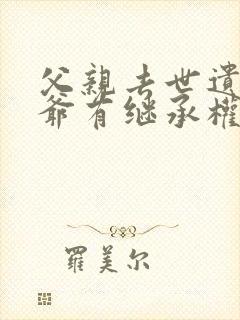 父親去世遺
爺有继承權
羅美尔